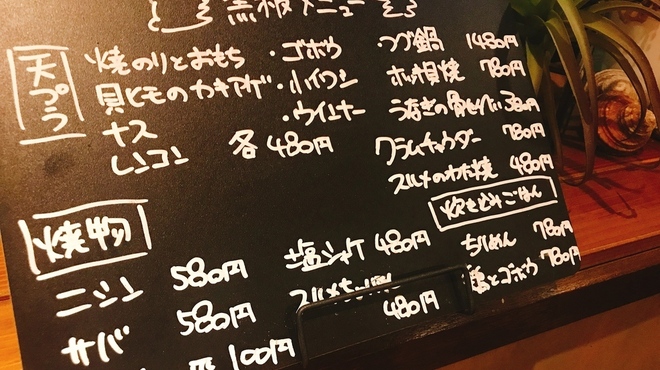 黒板メニュー
天ぷら
焼のりとおもち ・ゴボウ
貝ヒモのカキアゲ
・ウインナー
ナス
レンコン 各480円
・ツブ鍋 1480円
ホッ相焼 780円
うなぎの骨せんべい 380円
クラムチャウダー 780円
スルメのわた焼 480円
焼物
ニシン 580円
サバ 580円
100円
塩シャケ 480円
480円
炊き込みごはん
ちりめん 780円
鶏とゴボウ 780円